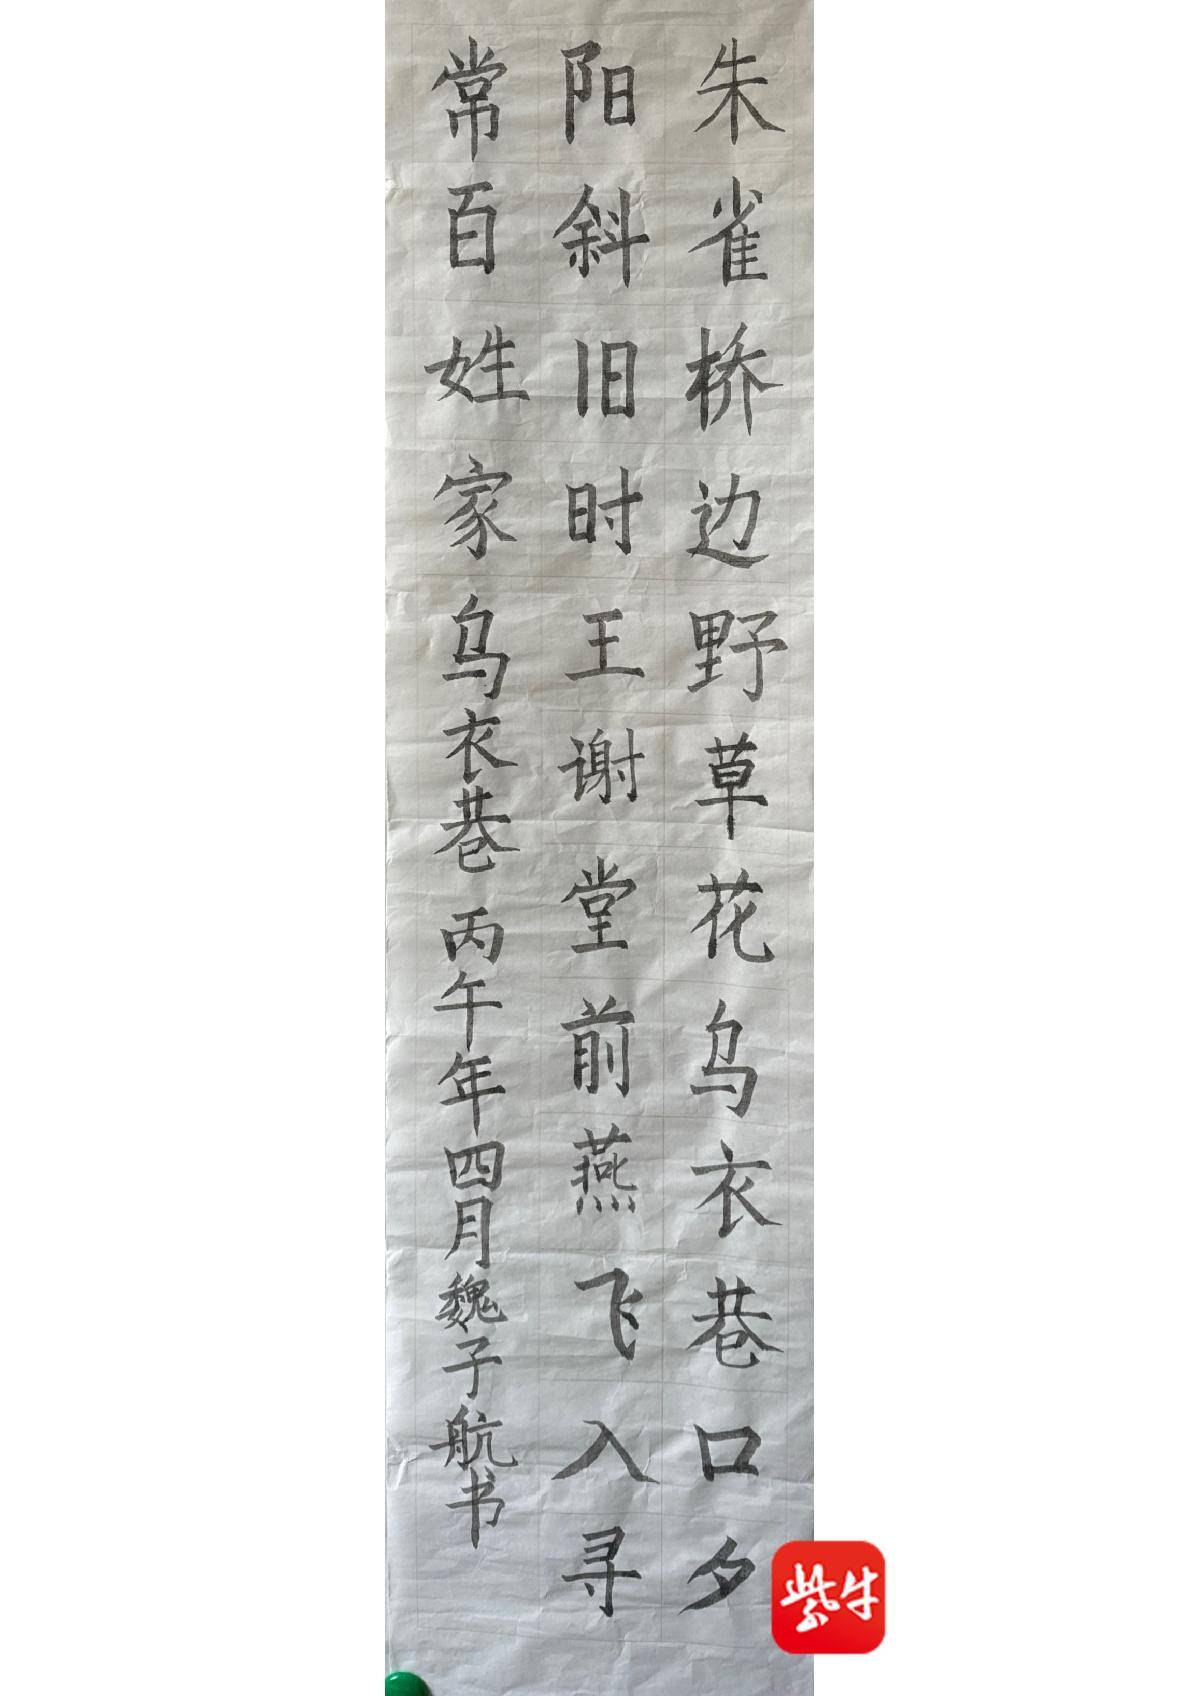 朱雀桥边野草花乌衣巷口夕
阳斜旧时王谢堂前燕飞入寻
常百姓家乌衣巷 丙午年四月魏子航书
紫牛